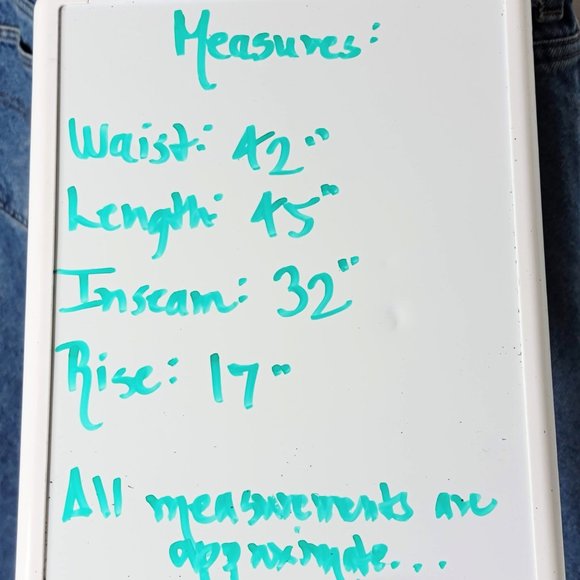 Measures:
Waist: 42"
Length: 45"
Inseam: 32"
Rise: 17"
All measurements are
approximate...